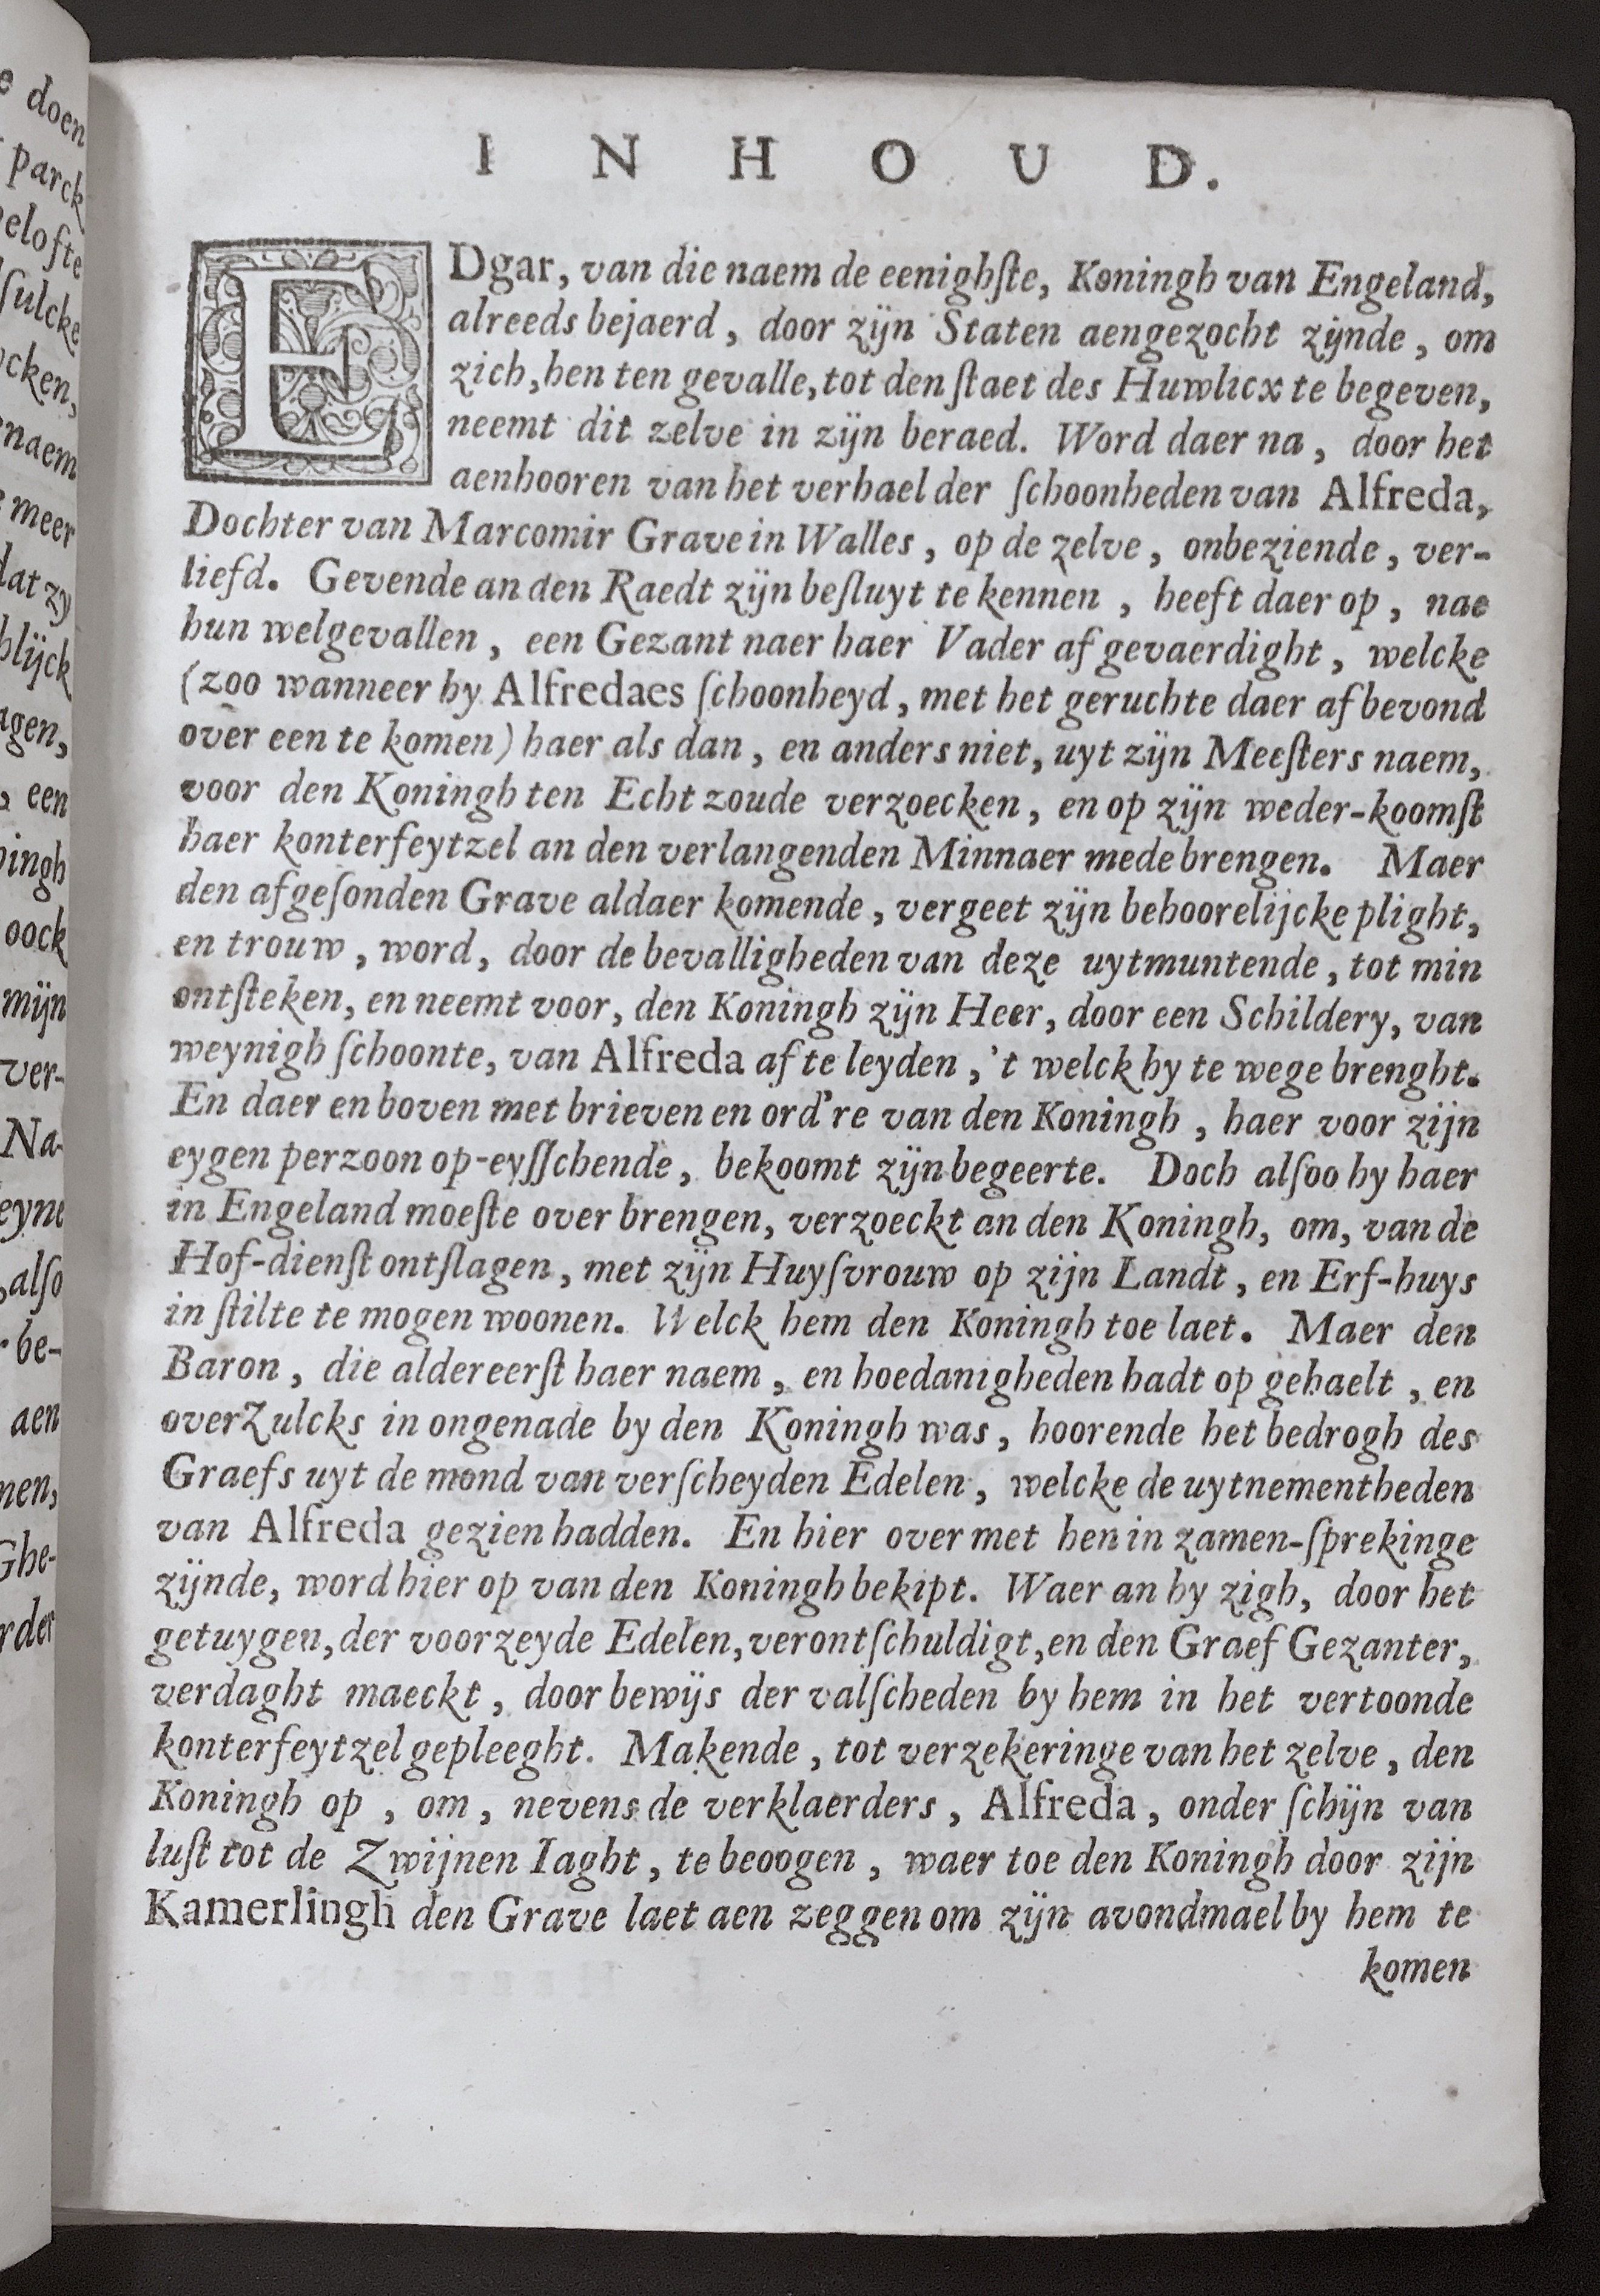 INHOUD.
EDgar, van die naem de eenighſte, Koningh van Engeland,
alreeds bejaerd, door zijn Staten aengezocht zijnde, om
zich, hen ten gevalle, tot den ſtaet des Huwlicx te begeven,
neemt dit zelve in zijn beraed. Word daer na, door het
aenhooren van het verhael der ſchoonheden van Alfreda,
Dochter van Marcomir Grave in Walles, op de zelve, onbeziende, ver-
liefd. Gevende an den Raedt zijn beſluyt te kennen, heeft daer op, nae
hun welgevallen, een Gezant naer haer Vader af gevaerdight, welcke
(zoo wanneer hy Alfredaes ſchoonheyd, met het geruchte daer af bevond
over een te komen) haer als dan, en anders niet, uyt zijn Meeſters naem,
voor den Koningh ten Echt zoude verzoecken, en op zijn weder-koomſt
haer konterfeytzel an den verlangenden Minnaer mede brengen. Maer
den afgeſonden Grave aldaer komende, vergeet zijn behoorelijcke plight,
en trouw, word, door de bevalligheden van deze uytmuntende, tot min
ontſteken, en neemt voor, den Koningh zijn Heer, door een Schildery, van
weynigh ſchoonte, van Alfreda af te leyden, 't welck hy te wege brenght.
En daer en boven met brieven en ord're van den Koningh, haer voor zijn
eygen perzoon op-eyſſchende, bekoomt zijn begeerte. Doch alſoo hy haer
in Engeland moeſte over brengen, verzoeckt an den Koningh, om, van de
Hof-dienſt ontſlagen, met zijn Huyſvrouw op zijn Landt, en Erf-huys
in ſtilte te mogen woonen. Welck hem den Koningh toe laet. Maer den
Baron, die aldereerſt haer naem, en hoedanigheden hadt op gehaelt, en
overZulcks in ongenade by den Koningh was, hoorende het bedrogh des
Graefs uyt de mond van verſcheyden Edelen, welcke de uytnementheden
van Alfreda gezien hadden. En hier over met hen in zamen-ſprekinge
zijnde, word hier op van den Koningh bekipt. Waer an hy zigh, door het
getuygen, der voorzeyde Edelen, verontſchuldigt, en den Graef Gezanter,
verdaght maeckt, door bewijs der valſcheden by hem in het vertoonde
konterfeytzel gepleeght. Makende, tot verzekeringe van het zelve, den
Koningh op, om, nevens de verklaerders, Alfreda, onder ſchijn van
luſt tot de Zwijnen Iaght, te beoogen, waer toe den Koningh door zijn
Kamerlingh den Grave laet aen zeggen om zijn avondmael by hem te
komen